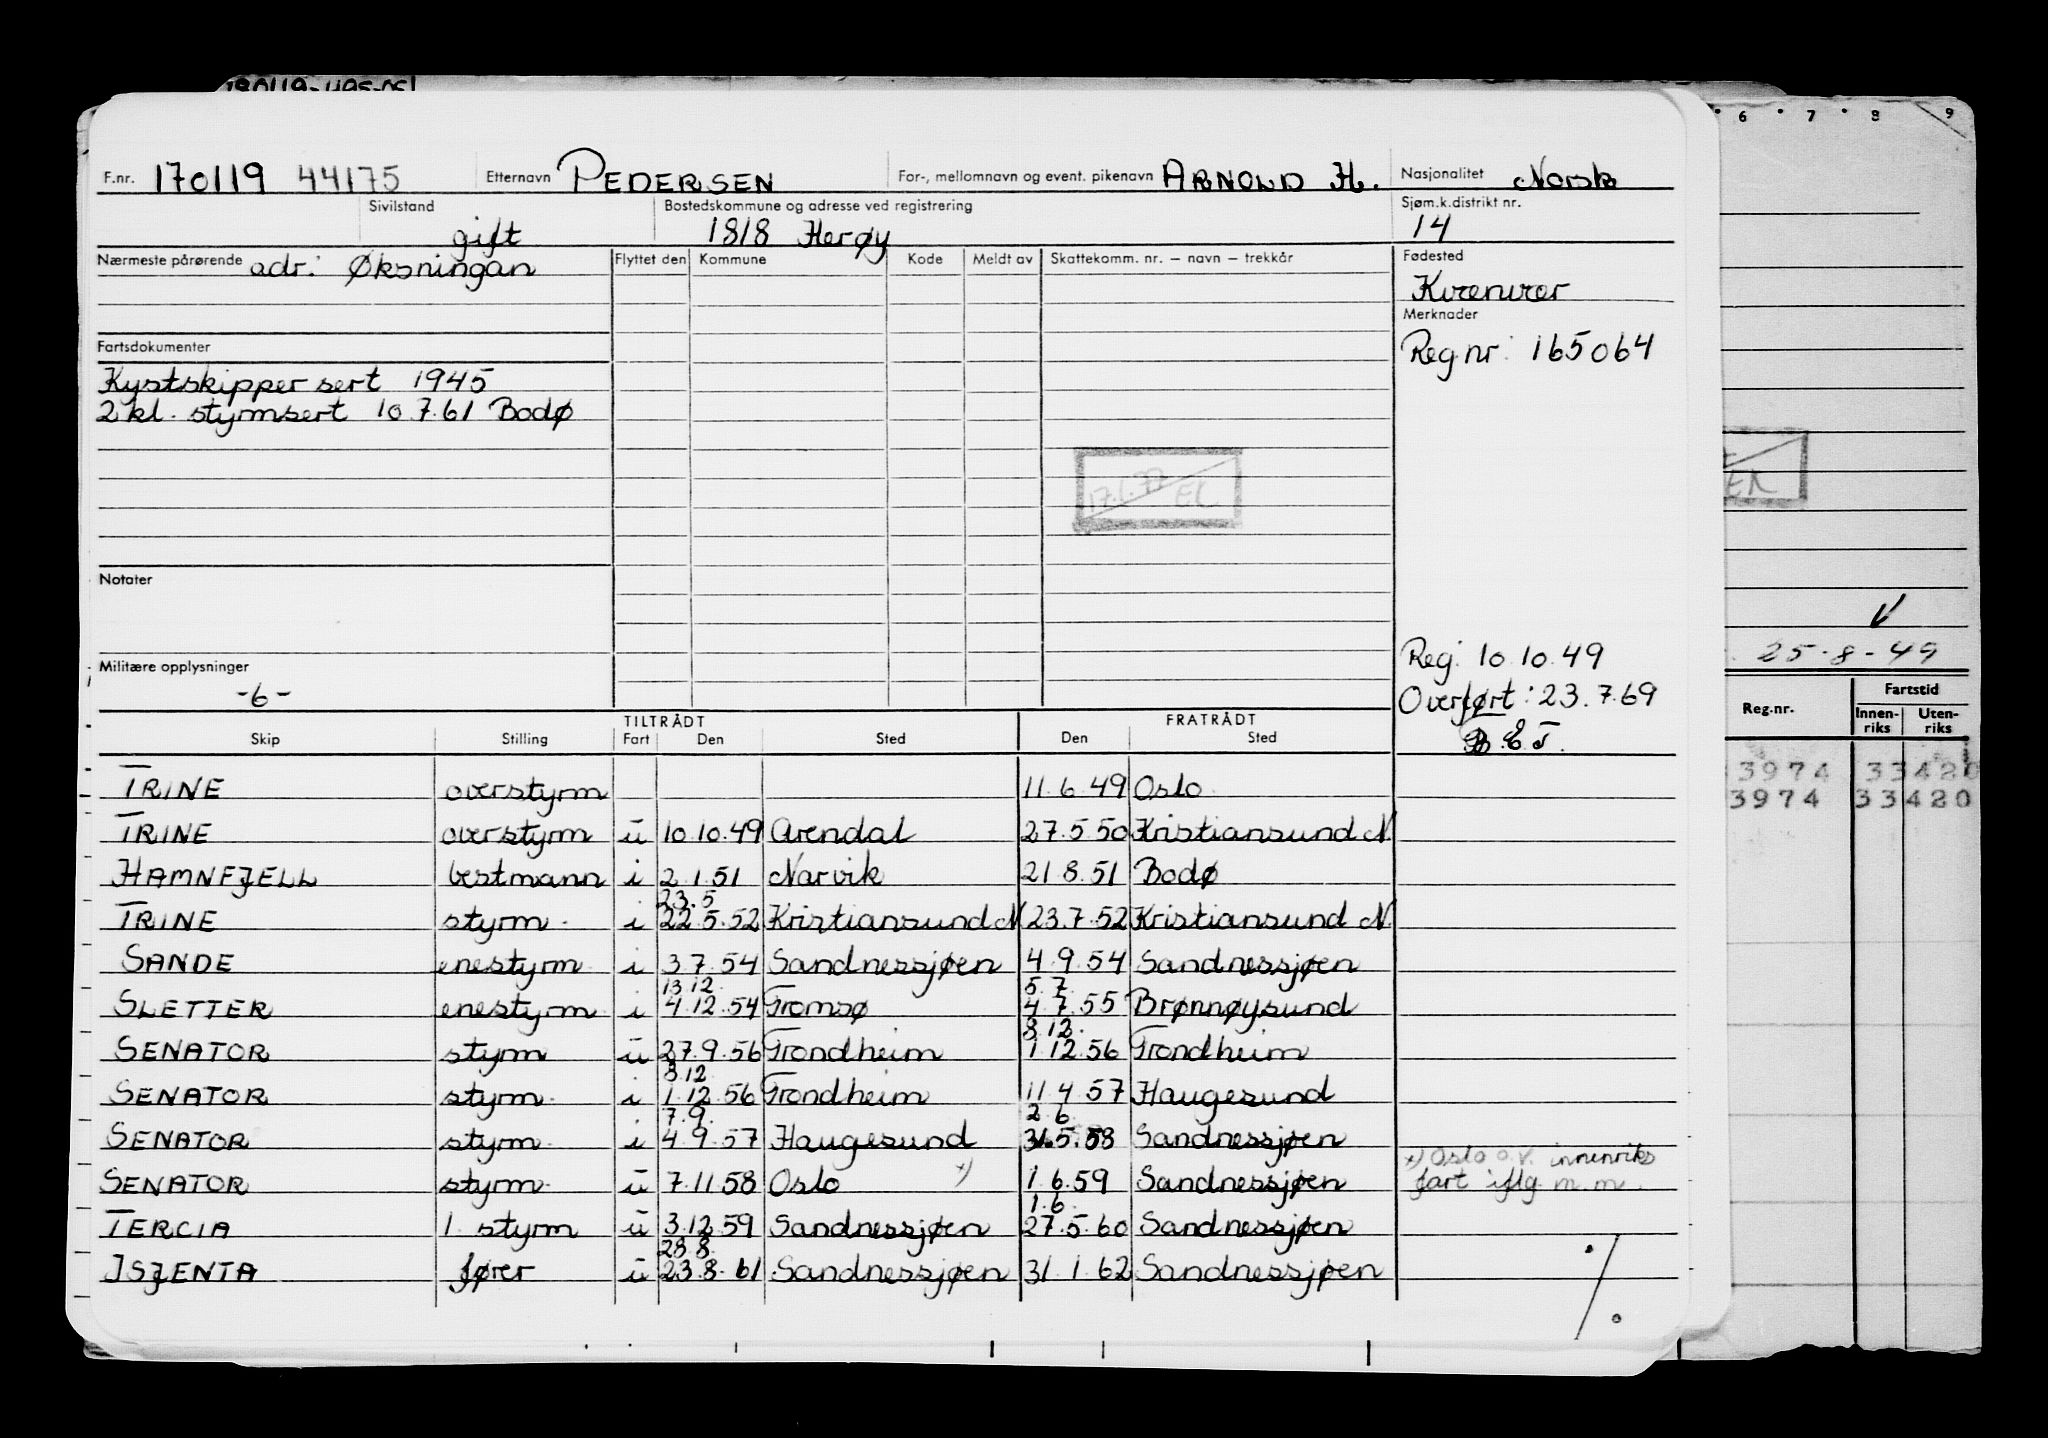 F.nr. 170119 44175 Etternavn PEDERSEN For-, mellomnavn og event. pikenavn ARNOLD H. Nasjonalitet Norsk
Sivilstand gift Bostedskommune og adresse ved registrering 1818 Herøy Sjøm.k.distrikt nr. 14
Nærmeste pårørende adr: Øksningan Flyttet den Kommune Kode Meldt av Skattekomm. nr. – navn – trekkår Fødested
Kvænvær
Merknader
Reg nr: 165064
Fartsdokumenter
Kystskipper sert 1945
2 kl. styrmsert 10.7.61 Bodø
17.1.77
Notater
Reg. 10.10.49
Militære opplysninger
-6-
Overført: 23.7.69
B.E.T.
TILTRÅDT FRATRÅDT
Skip Stilling Fart Den Sted Den Sted
TRINE overstyrm 11.6.49 Oslo
TRINE overstyrm u 10.10.49 Arendal 27.5.50 Kristiansund N.
HAMNFJELL bestmann i 2.1.51 Narvik 21.8.51 Bodø
23.5
TRINE styrm. i 22.5.52 Kristiansund N 23.7.52 Kristiansund N.
SANDE enestyrm. i 3.7.54 Sandnessjøen 4.9.54 Sandnessjøen
13.12 5.7.
SLETTER enestyrm. i 4.12.54 Tromsø 4.7.55 Brønnøysund
8.12.
SENATOR styrm u 27.9.56 Trondheim 1.12.56 Trondheim
8.12
SENATOR styrm. i 1.12.56 Trondheim 11.4.57 Haugesund
7.9. 2.6
SENATOR styrm. i 4.9.57 Haugesund 31.5.58 Sandnessjøen
x) Oslo o.v. innenriks
SENATOR styrm. u 7.11.58 Oslo x) 1.6.59 Sandnessjøen fart iflg m.m.
1.6.
TERCIA 1. styrm u 3.12.59 Sandnessjøen 27.5.60 Sandnessjøen
28.8.
ISJENTA fører u 23.8.61 Sandnessjøen 31.1.62 Sandnessjøen
6 7 8 9
25-8-49
Reg.nr. Fartstid
Innen-riks Uten-riks
3974 33420
3974 33420